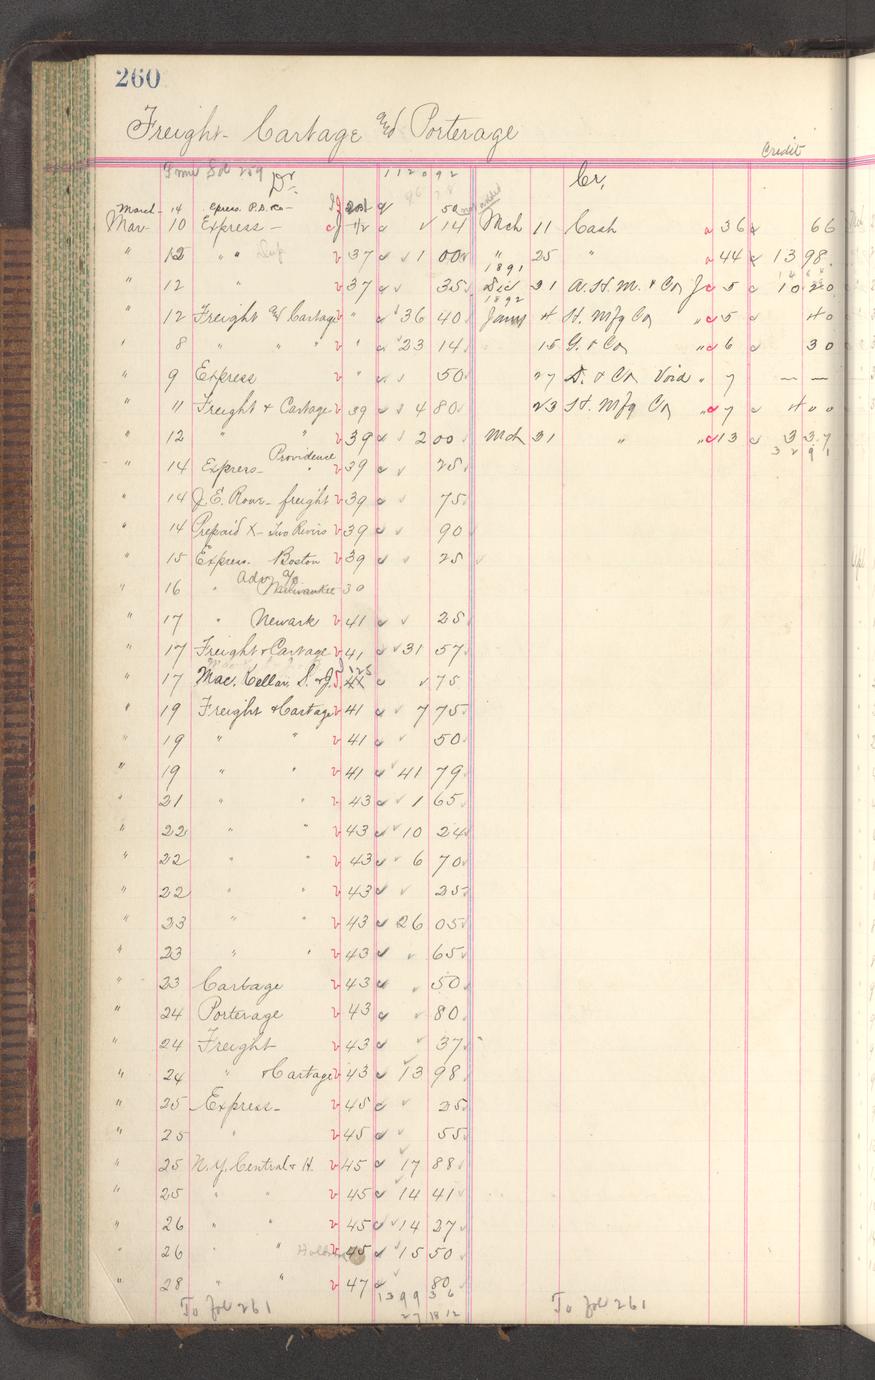 260
Freight- Cartage and Porterage
Credit
From Fol 259 Dr. 1120 92
March 14 Express. P.S. Co 50
Mar 10 Express - 14
" 12 " " Dup 37 1 00
" 12 " 37 35
" 12 Freight & Cartage " 36 40
" 8 " " " 23 14
" 9 Express " 50
" 11 Freight + Cartage 39 4 80
" 12 " " 39 2 00
" 14 Express- Providence 39 25
" 14 J. E. freight 39 75
" 14 Prepaid X- Two Rivers 39 90
" 15 Express. Boston 39 25
" 16 " Adv Milwaukee 39
" 17 " Newark 41 25
" 17 Freight + Cartage 41 31 57
" 17 Mac. Kellar, S. & J. 125 75
" 19 Freight & Cartage 41 7 75
" 19 " " 41 50
" 19 " " 41 41 79
" 21 " " 43 1 65
" 22 " " 43 10 24
" 22 " " 43 6 70
" 22 " " 43 25
" 23 " " 43 26 05
" 23 " " 43 65
" 23 Cartage 43 50
" 24 Porterage 43 80
" 24 Freight 43 37
" 24 " & Cartage 43 13 98
" 25 Express- 45 25
" 25 " 45 55
" 25 N.Y. Central & H. 45 17 88
" 25 " " 45 14 41
" 26 " " 45 14 27
" 26 " 45 15 50
" 28 " " 47 80
1399 36
27 18 12
To Fol 261
Cr,
Mch 11 Cash 36 66
" 25 " 44 13 98
1891
Dec 31 A. H. M. & Co J 5 10 20
1892
Jany 4 H. Mfg Co " 5 40
15 G. & Co " 6 30
27 S. & Co Void " 7 — —
23 H. Mfg Co " 7 4 00
Mch 31 " " 13 3 37
32 91
To Fol 261